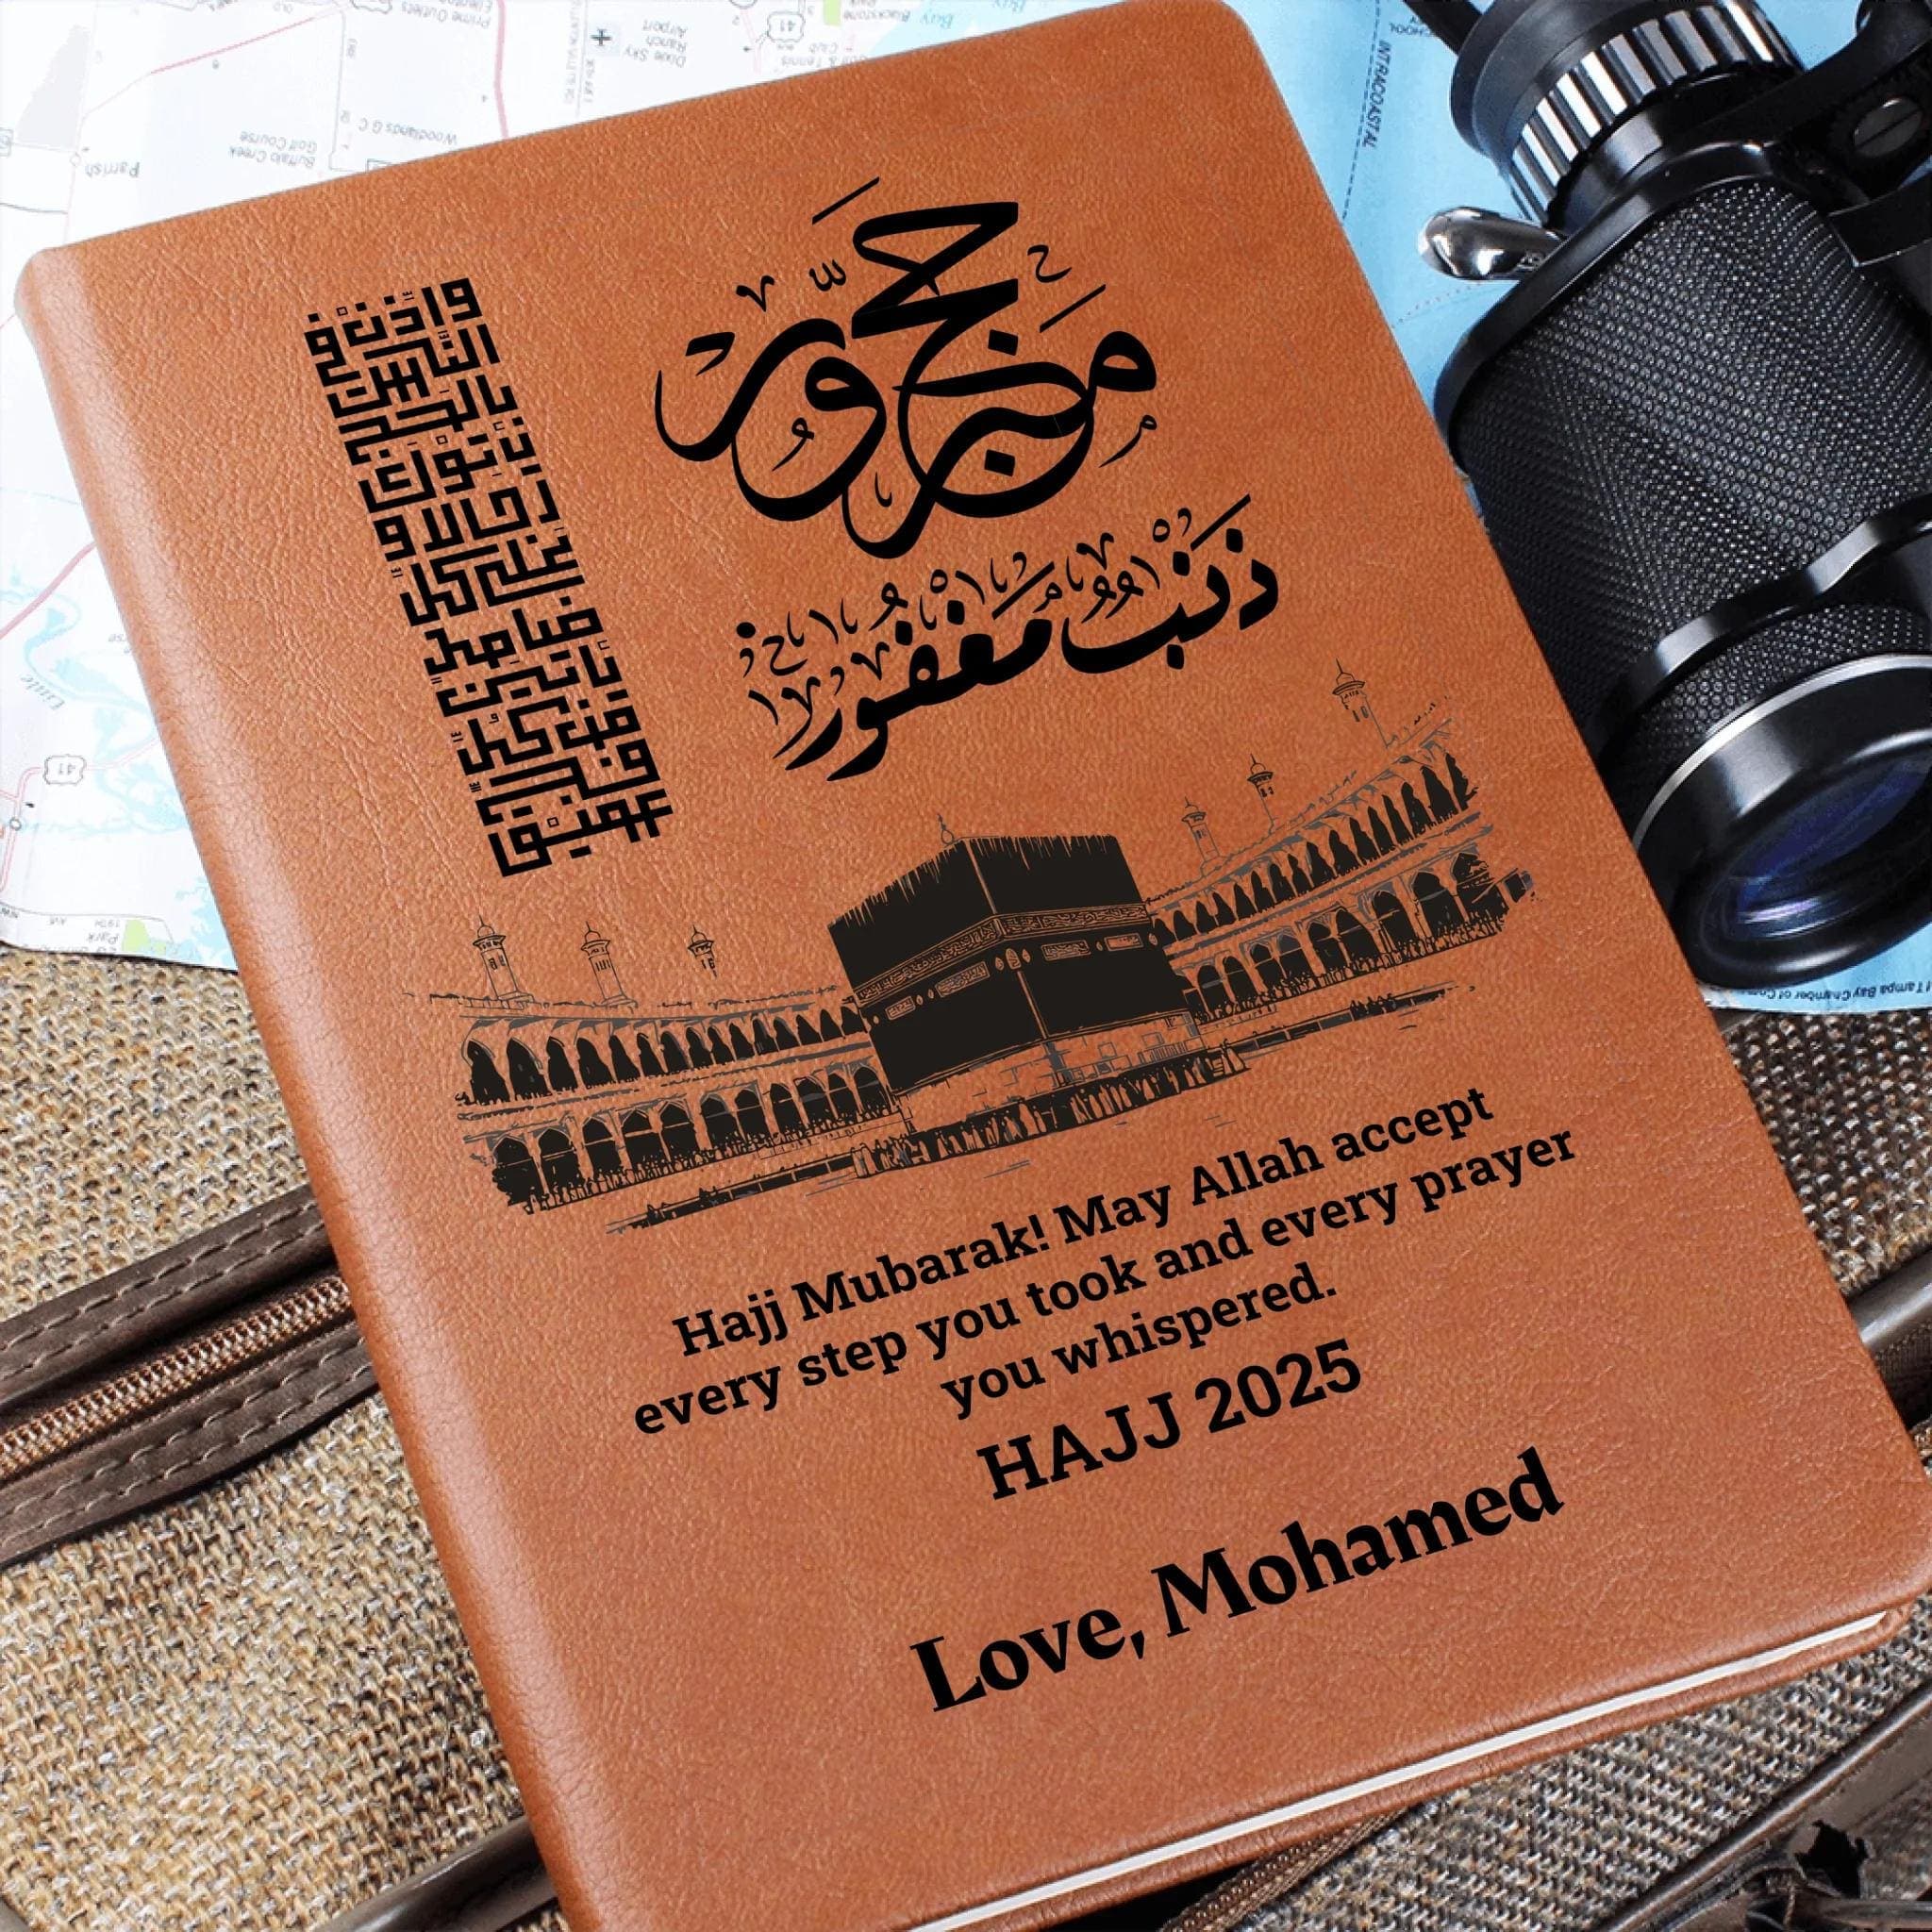 وأذن في
الناس
بالحج
يأتوك
رجالا و
على كل
ضامر
يأتين
من كل
فج
عميق
حج مبرور
ذنب مغفور
Hajj Mubarak! May Allah accept
every step you took and every prayer
you whispered.
HAJJ 2025
Love, Mohamed
Prime Outlets
Dixie Sky
Ranch
Airport
41
Woodlands G C
Buffalo Creek
Golf Course
Parrish
41
19TH
Park
INTRACOASTAL
Tampa Bay Chamber of Com